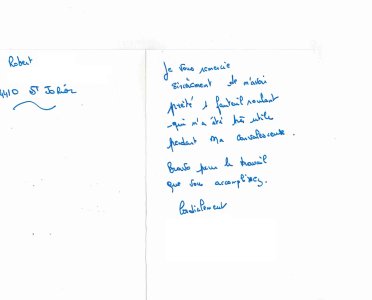 Robert
4410 St Jorioz
Je vous remercie
sincèrement de m'avoir
prêté 1 fauteuil roulant
qui m'a été très utile
pendant ma convalescence.
Bravo pour le travail
que vous accomplissez.
Cordialement